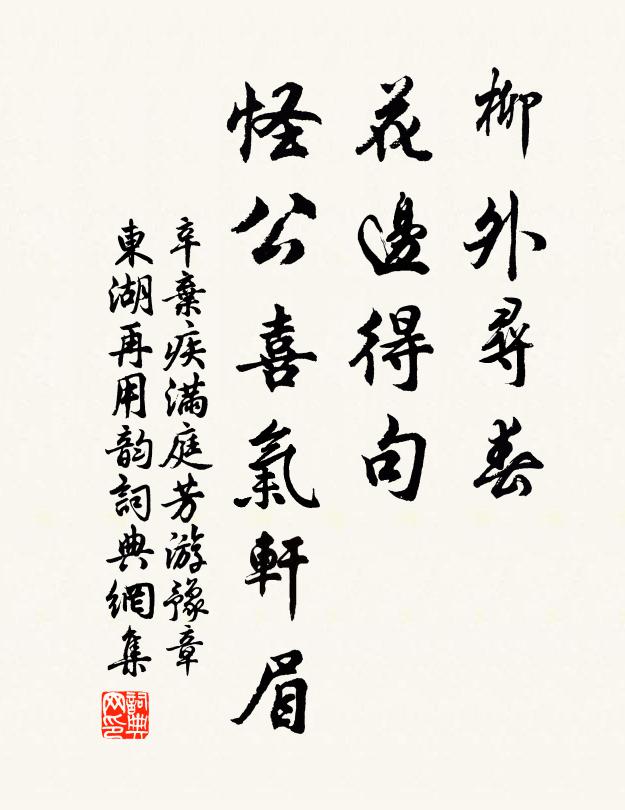 柳外尋春
花邊得句
怪公喜氣軒眉
辛棄疾滿庭芳游豫章
東湖再用韵詞典網集
詞典
网印